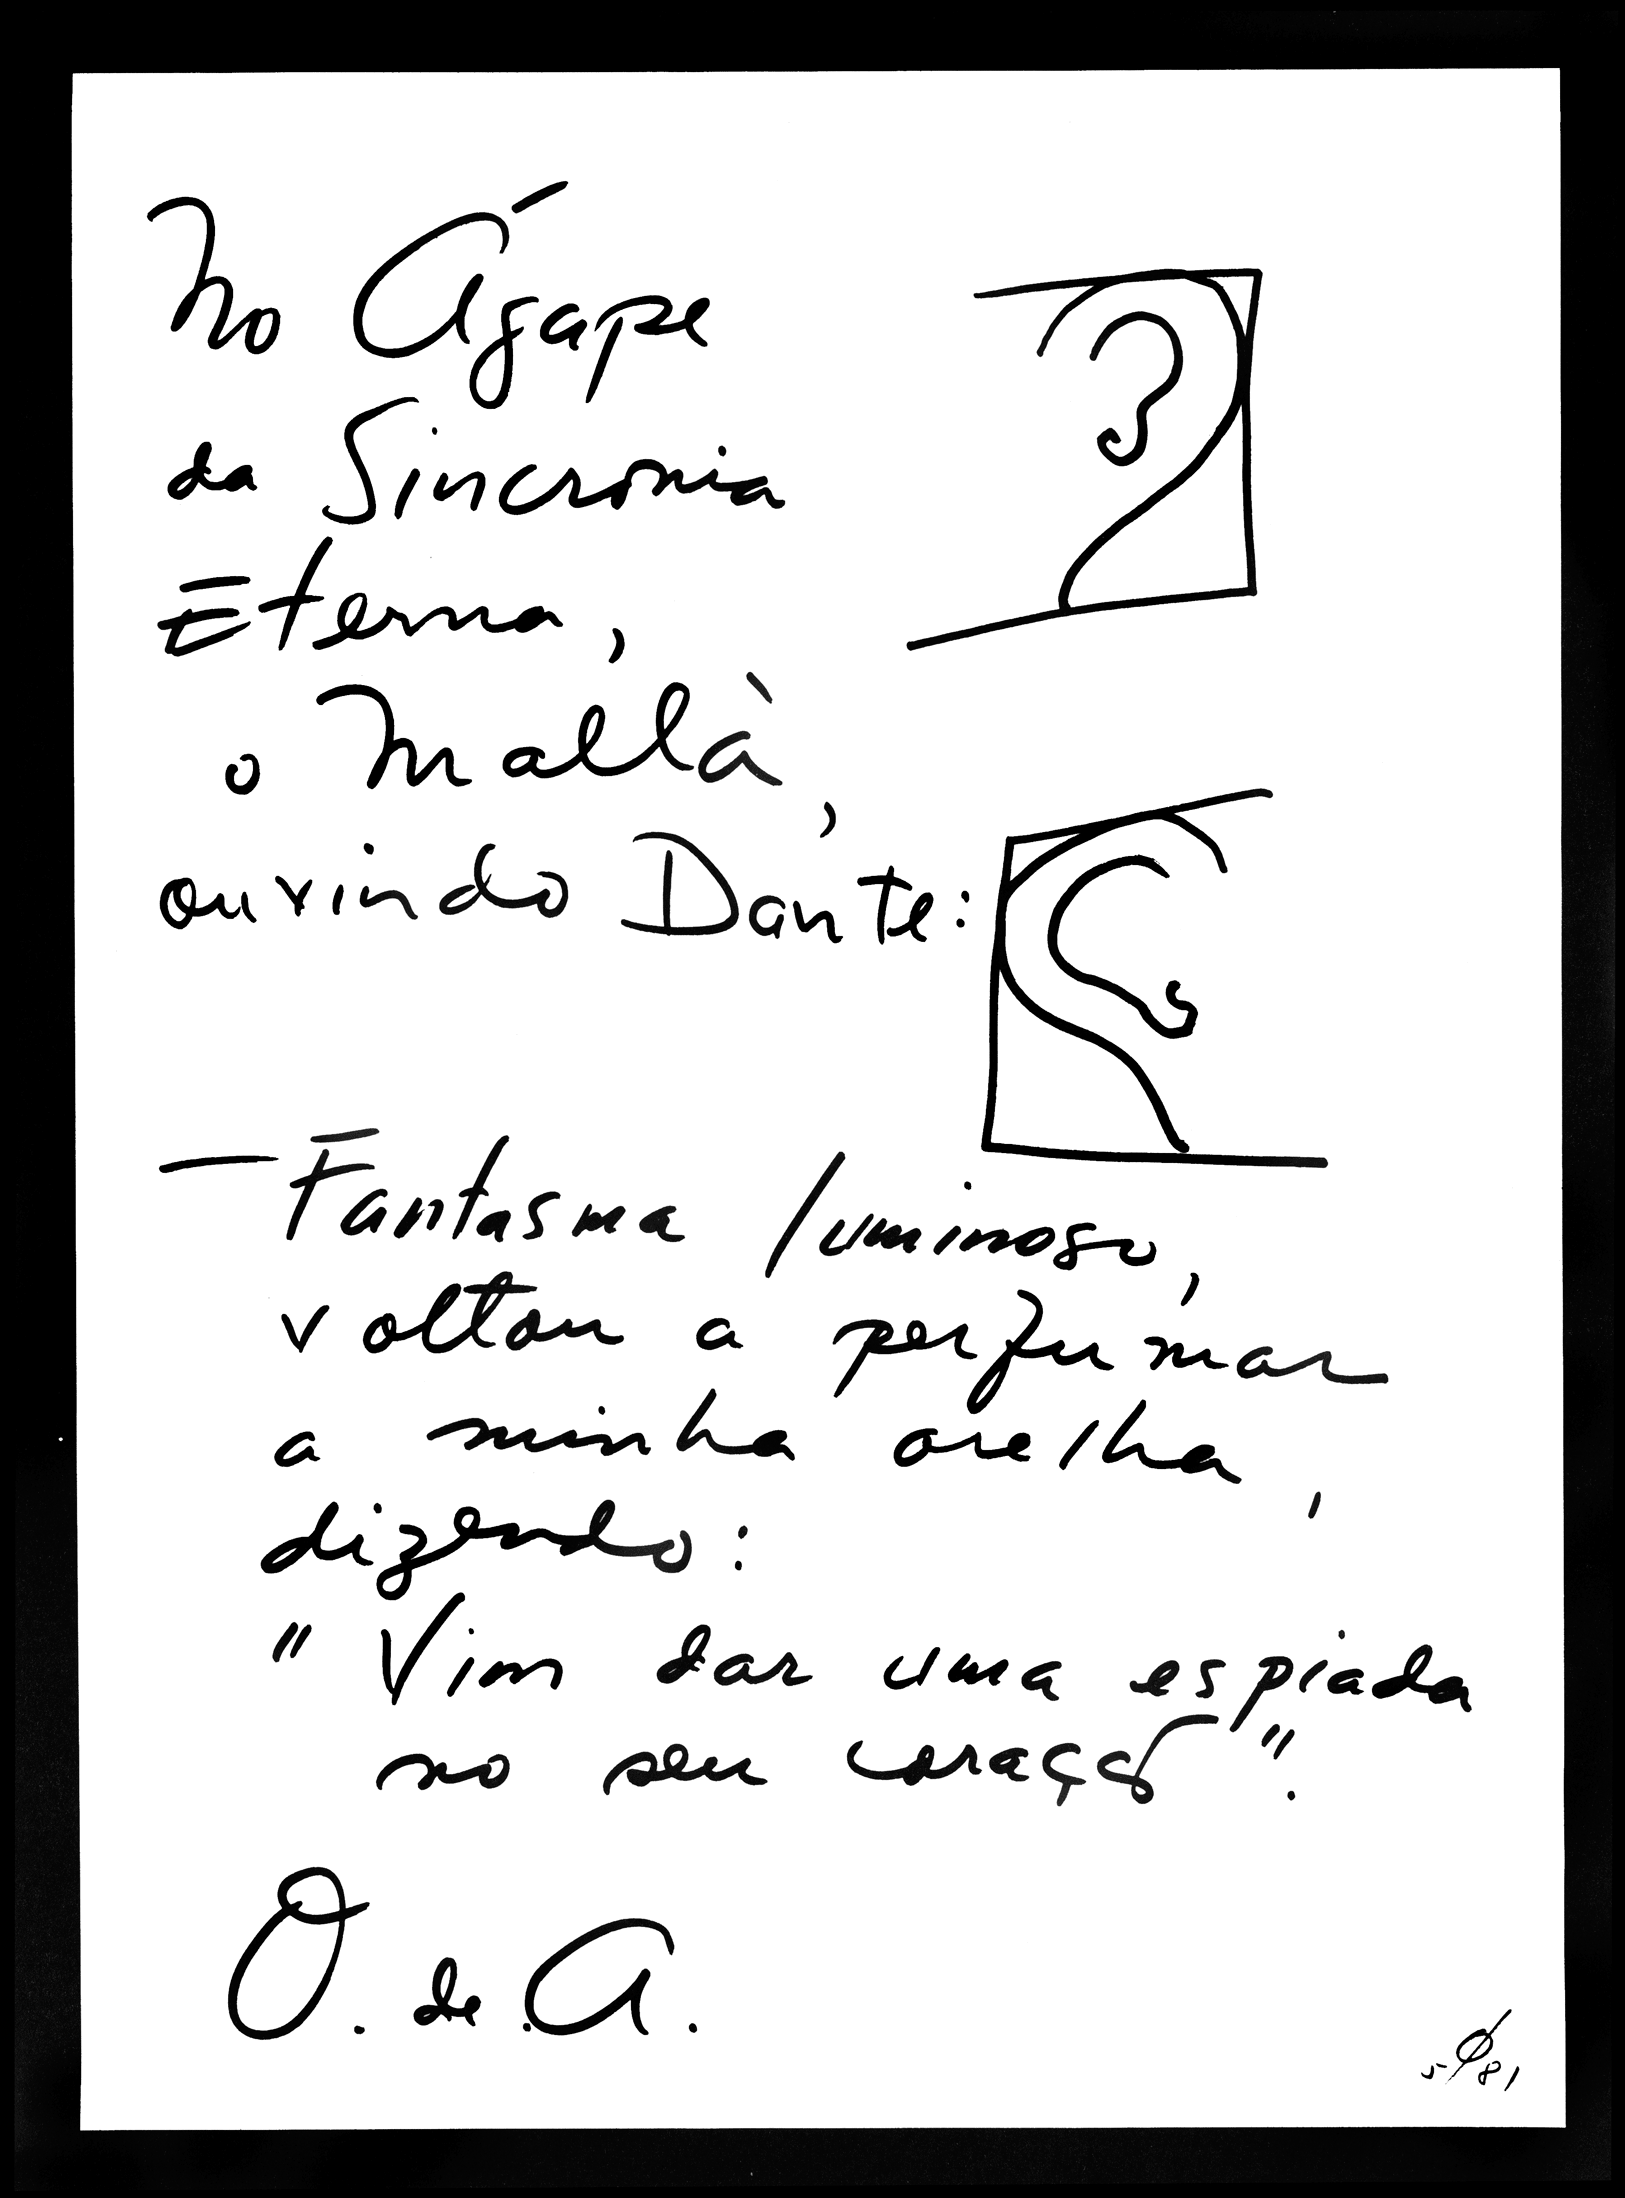 No Ágape
da Sincronia
Eterna,
o Mallà,
ouvindo Dante:
— Fantasma luminoso,
voltou a perfumar
a minha orelha,
dizendo:
"Vim dar uma espiada
no seu coração".
O. de A.
5 81